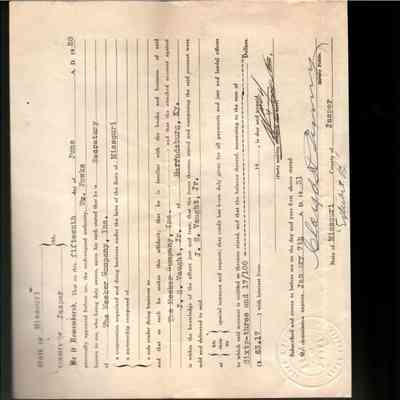 State of Missouri
County of Jasper } ss.
Be It Remembered, That on this fifteenth day of June A. D. 1929
personally appeared before me, the undersigned authority, Wm. Fowks
known to me, who being duly sworn, upon his oath stated that he is Secretary
of The Meeker Company, Inc.
a corporation organized and doing business under the laws of the State of Missouri
a partnership composed of
a sole trader doing business as
and that as such he makes this affidavit; that he is familiar with the books and business of said
The Meeker Company, Inc., and that the attached account against
J. G. Vaught, Jr. of Harrodsburg, Ky.
is within the knowledge of the affiant just and true; that the items therein stated and comprising the said account were
sold and delivered to said J. G. Vaught, Jr.
at special instance and request; that credit has been duly given for all payments and just and lawful offsets
to which said account is entitled as therein stated, and that the balance thereof, amounting to the sum of
Sixty-three and 17/100 Dollars,
($ 63.17 ) with interest from 19 , is due and unpaid.
Subscribed and sworn to before me on the day and year first above stated
My commission expires Jan'ry 7th A. D. 1931
Notary Public.
State of Missouri County of Jasper